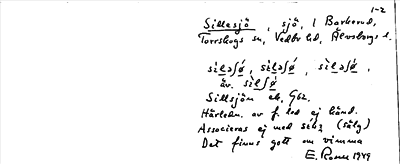 1-2
Sillesjö, sjö, i Barkerud,
Torrskogs sn, Vedbo hd, Älvsborgs l.
silǝʃǿ, silǝʃǿ, silǝʃǿ,
äv. silʃǿ
Sillsjön ek. G62.
Härledn. av f. led ej känd.
Associeras ej med (sälg)
Det finns gott om vimma
E. 1949